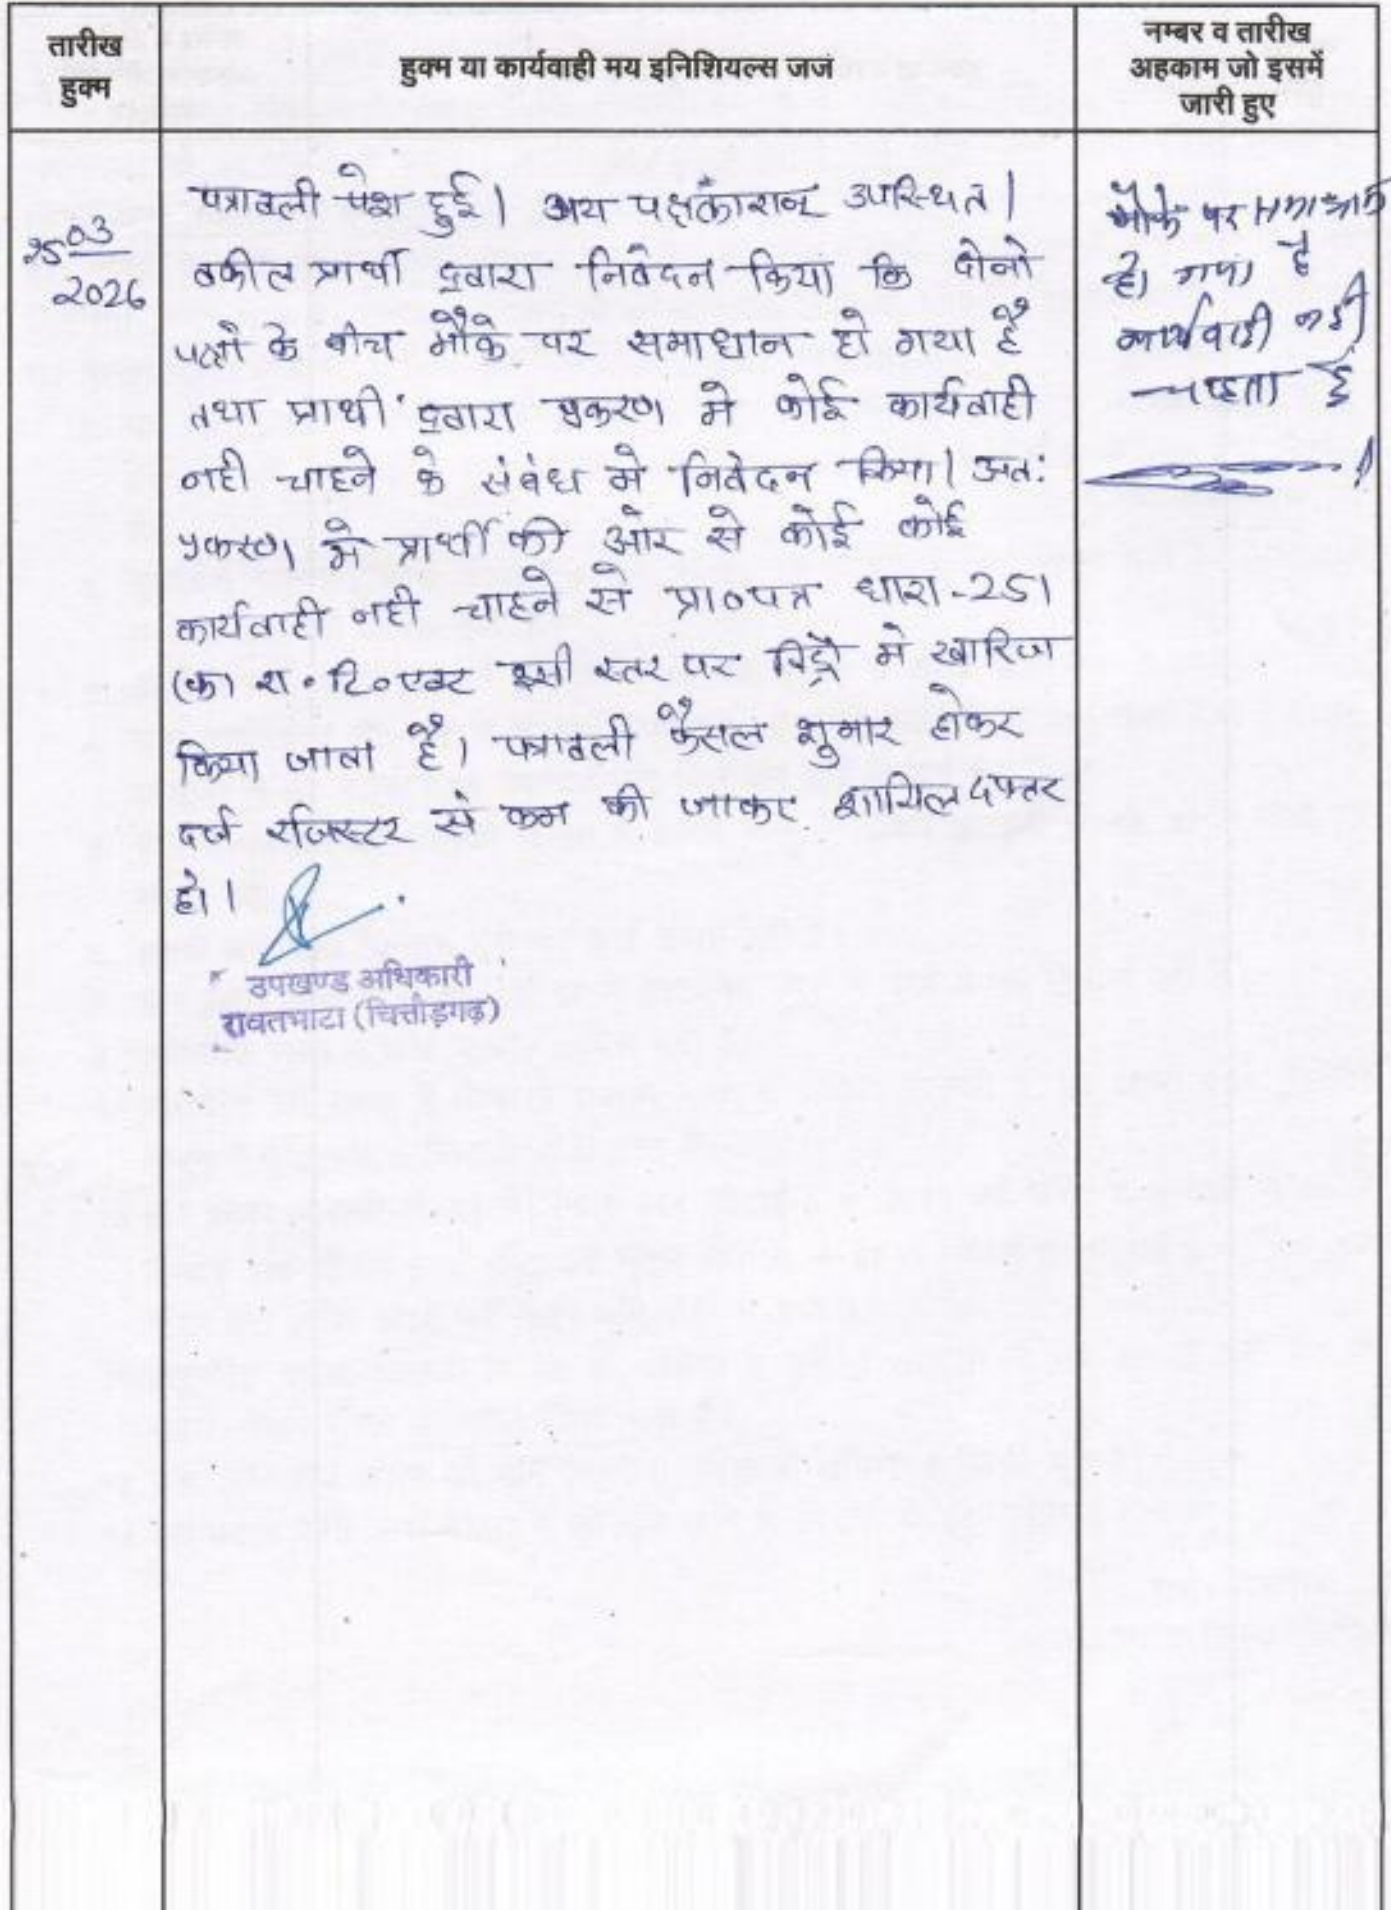 तारीख
हुक्म
हुक्म या कार्यवाही मय इनिशियल्स जज
नम्बर व तारीख
अहकाम जो इसमें
जारी हुए
25 03
2026
पत्रावली पेश हुई। उभय पक्षकारान उपस्थित।
वकील प्रार्थी द्वारा निवेदन किया कि दोनो
पक्षो के बीच मौके पर समाधान हो गया है
तथा प्रार्थी द्वारा प्रकरण मे कोई कार्यवाही
नही चाहने के संबंध मे निवेदन किया। अत:
प्रकरण मे प्रार्थी की ओर से कोई कोई
कार्यवाही नही चाहने से प्रा०पत्र धारा-251
(क) रा०टि०एक्ट इसी स्तर पर विड्रो मे खारिज
किया जाता है। पत्रावली फैसल शुमार होकर
दर्ज रजिस्टर से कम की जाकर शामिल दफ्तर
हो।
उपखण्ड अधिकारी
रावतभाटा (चित्तौड़गढ़)
मौके पर समाधान
हो गया है
कार्यवाही नही
चाहता है